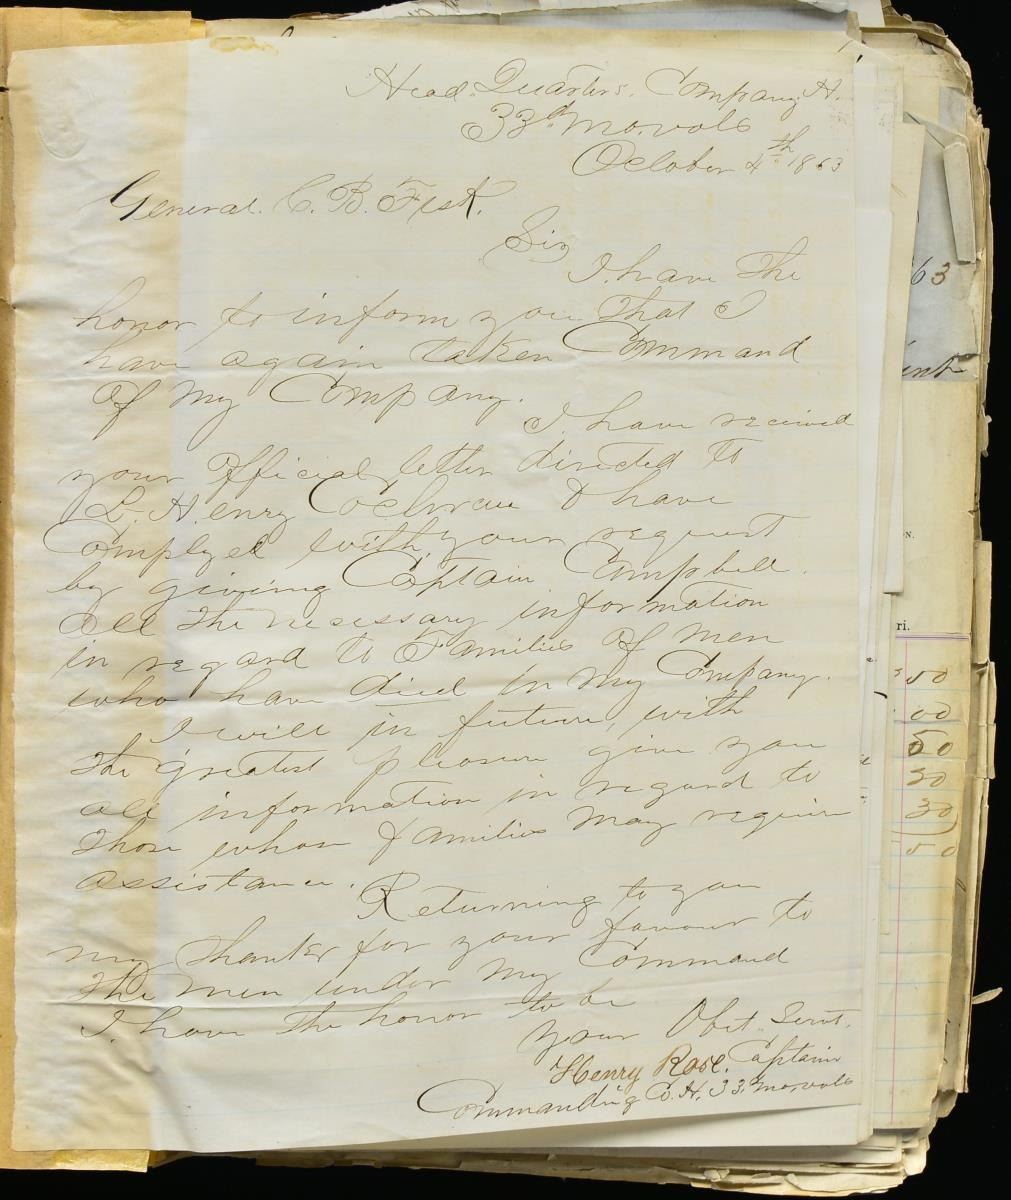 Head Quarters. Company H.
33d Mo. vols
October 4th 1863
General. C. B. Fisk.
Sir
I have the
honor to inform you that I
have again taken Command
of my Company.
I have received
your official letter directed to
Lt. Henry Cochran & have
Complyed with your request
by giving Captain Campbell.
all the necessary information
in regard to Families of men
who have died in my Company.
I will in future, with
the greatest pleasure give you
all information in regard to
those whose families may require
assistance.
Returning to you
my thanks for your favour to
the men under my Command
I have the honor to be
your Obet. Servt.
Henry Rose. Captain
Commanding Co. H. 33d Mo vols
63
ri.
50
00
50
30
30
50